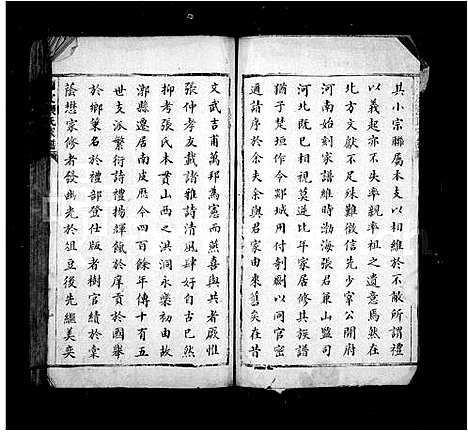 其小宗聯屬本支以相維於不敝所謂禮
以義起亦不失率親率祖之遺意焉然在
北方文獻不足殊難徵信先少宰公開府
河南始刻家譜維時渤海張君蒹山監司
河北既已相視莫逆比年家居修其族譜
猶子楚垣作令鄴城用付剞劂以同官密
通請序於余夫余與君家由來舊矣在昔
文武吉甫萬邦為憲而燕喜與共者厥有
張仲孝友載諸雅詩清風肆好自古已然
抑考張氏本貫山西之洪洞永樂初由故
漷縣遷居南皮歷今四百餘年傳十有五
世支派繁衍詩禮揚輝飲於庠貢於國舉
於鄉策名於禮部登仕版者樹官績於棠
蔭懋家修者發幽光於俎豆後先繼美奕